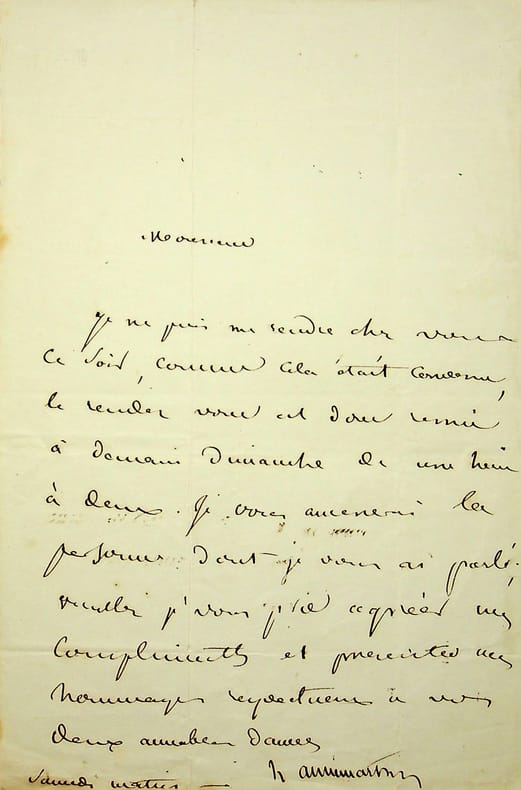 Monsieur
Je ne puis me rendre chez vous
ce soir, comme cela était convenu,
le rendez vous est donc remis
à demain Dimanche de une heure
à deux. Je vous amenerai la
personne dont je vous ai parlé,
veuillez je vous prie agréer mes
compliments et présenter mes
hommages respectueux à vos
deux aimables Dames
Samedi matin —